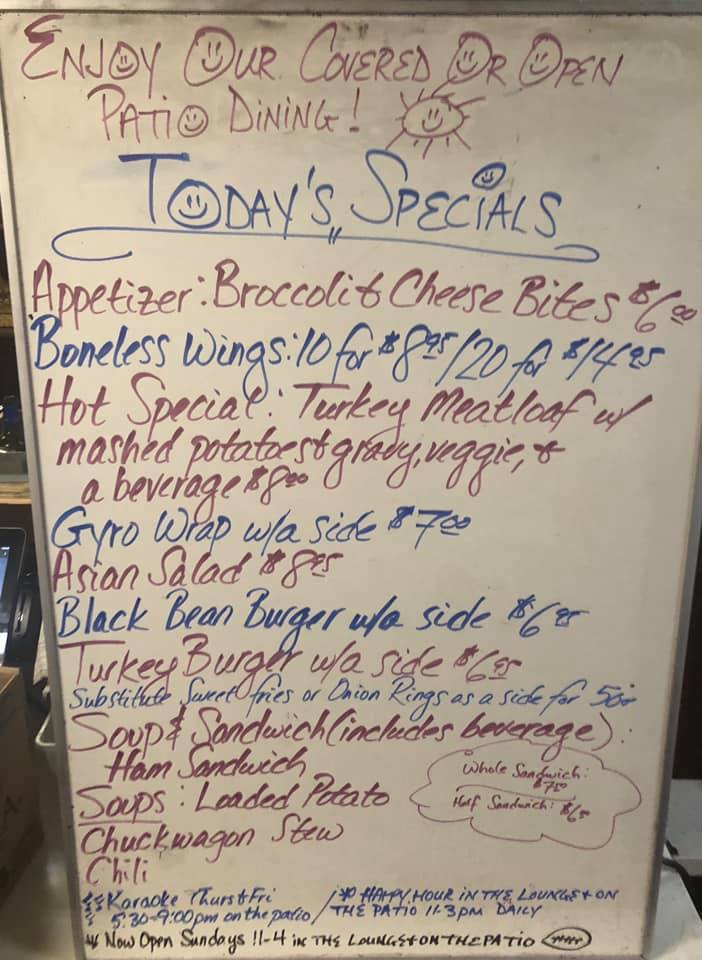 ENJOY OUR COVERED OR OPEN
PATIO DINING!
TODAY'S SPECIALS
Appetizer: Broccoli & Cheese Bites $6.00
Boneless Wings: 10 for $8.95/20 for $14.95
Hot Special: Turkey Meatloaf w/
mashed potatoes & gravy, veggie, &
a beverage $8.00
Gyro Wrap w/a side $7.00
Asian Salad $8.95
Black Bean Burger w/a side $6.95
Turkey Burger w/a side $6.95
Substitute Sweet fries or Onion Rings as a side for 50¢
Soup & Sandwich (includes beverage):
Ham Sandwich
Whole Sandwich:
$7.50
Half Sandwich: $6.50
Soups: Loaded Potato
Chuckwagon Stew
Chili
Karaoke Thurs & Fri
5:30-9:00pm on the patio
HAPPY HOUR IN THE LOUNGE & ON
THE PATIO 11-3PM DAILY
Now Open Sundays 11-4 IN THE LOUNGE & ON THE PATIO